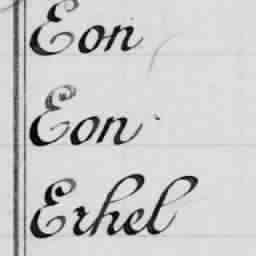 Eon
Eon
Erhel